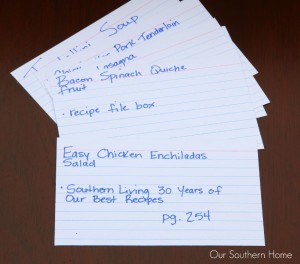 Soup
Pork Tenderloin
Lasagna
Bacon Spinach Quiche
fruit
· recipe file box
Easy Chicken Enchiladas
Salad
· Southern Living 30 Years of
Our Best Recipes
pg. 254
Our Southern Home